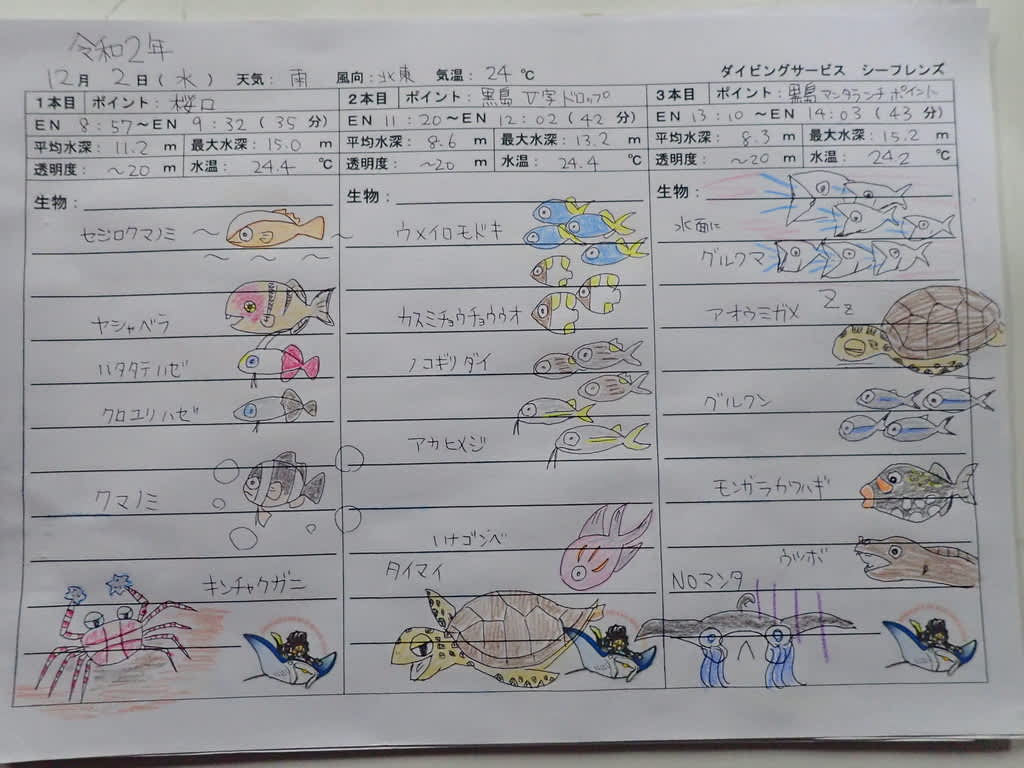 令和2年
12月 2日(水) 天気: 雨 風向: 北東 気温: 24℃ ダイビングサービス シーフレンズ
1本目 ポイント: 桜口
EN 8:57～EN 9:32 (35分)
平均水深: 11.2 m 最大水深: 15.0 m
透明度: ～20 m 水温: 24.4 ℃
生物:
セジロクマノミ
ヤシャベラ
ハタタテハゼ
クロユリハゼ
クマノミ
キンチャクガニ
2本目 ポイント: 黒島 V字ドロップ
EN 11:20～EN 12:02 (42分)
平均水深: 8.6 m 最大水深: 13.2 m
透明度: ～20 m 水温: 24.4 ℃
生物:
ウメイロモドキ
カスミチョウチョウウオ
ノコギリダイ
アカヒメジ
ハナゴンベ
タイマイ
3本目 ポイント: 黒島マンタランチポイント
EN 13:10～EN 14:03 (43分)
平均水深: 8.3 m 最大水深: 15.2 m
透明度: ～20 m 水温: 24.2 ℃
生物:
水面に
グルクマ
アオウミガメ Zz
グルクン
モンガラカワハギ
ウツボ
NOマンタ